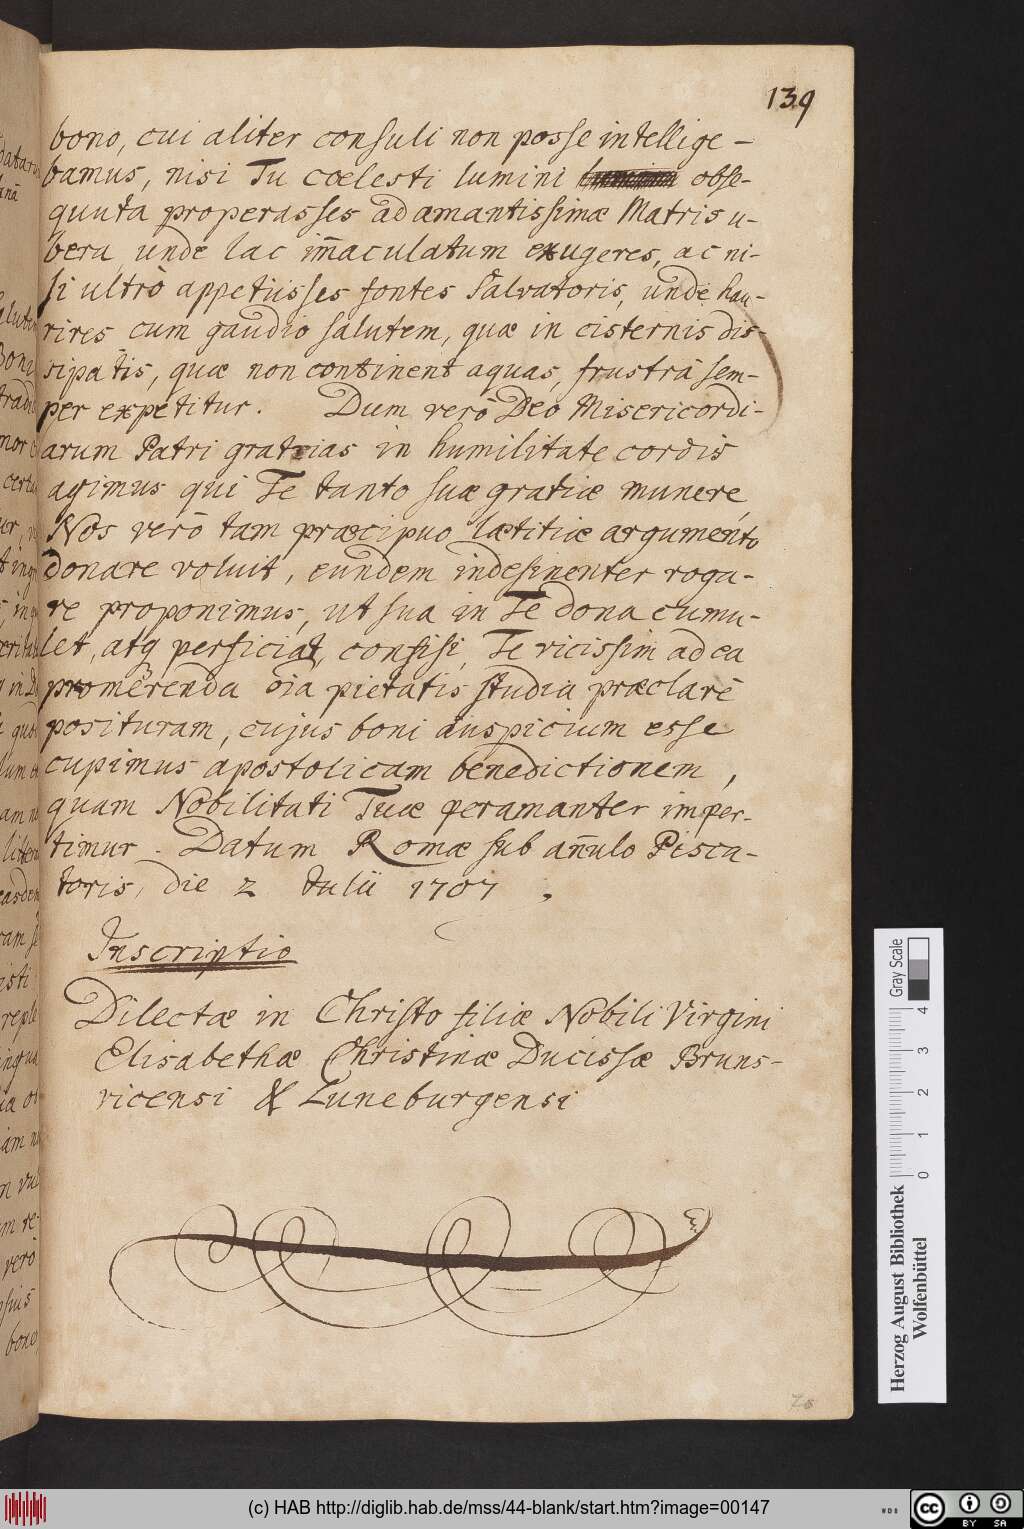 139
bono, cui aliter consuli non posse intellige-
bamus, nisi Tu cœlesti lumini obse-
quuta properasses ad amantissimæ Matris u-
bera, unde lac im̄aculatum exugeres, ac ni-
si ultrò appetiisses fontes Salvatoris, unde hau-
rires cum gaudio salutem, quæ in cisternis dis-
sipatis, quæ non continent aquas, frustrà sem-
per expetitur. Dum verò Deo Misericordi-
arum Patri gratias in humilitate cordis
agimus qui Te tanto suæ gratiæ munere,
Nos verò tam præcipuo lætitiæ argumento
donare voluit, eundem indesinenter roga-
re proponimus, ut sua in Te dona cumu-
let, atq perficiat, confisi, Te vicissim ad ea
promerenda oīa pietatis studia præclarè
posituram, cujus boni auspicium esse
cupimus apostolicam benedictionem,
quam Nobilitati Tuæ peramanter imper-
timur. Datum Romæ sub an̄ulo Pisca-
toris, die 2 Iulii 1707.
Inscriptio
Dilectæ in Christo filiæ Nobili Virgini
Elisabethæ Christinæ Ducissæ Bruns-
vicensi & Luneburgensi
Gray Scale
0 1 2 3 4
Herzog August Bibliothek
Wolfenbüttel
(c) HAB http://diglib.hab.de/mss/44-blank/start.htm?image=00147
WDB
cc BY SA